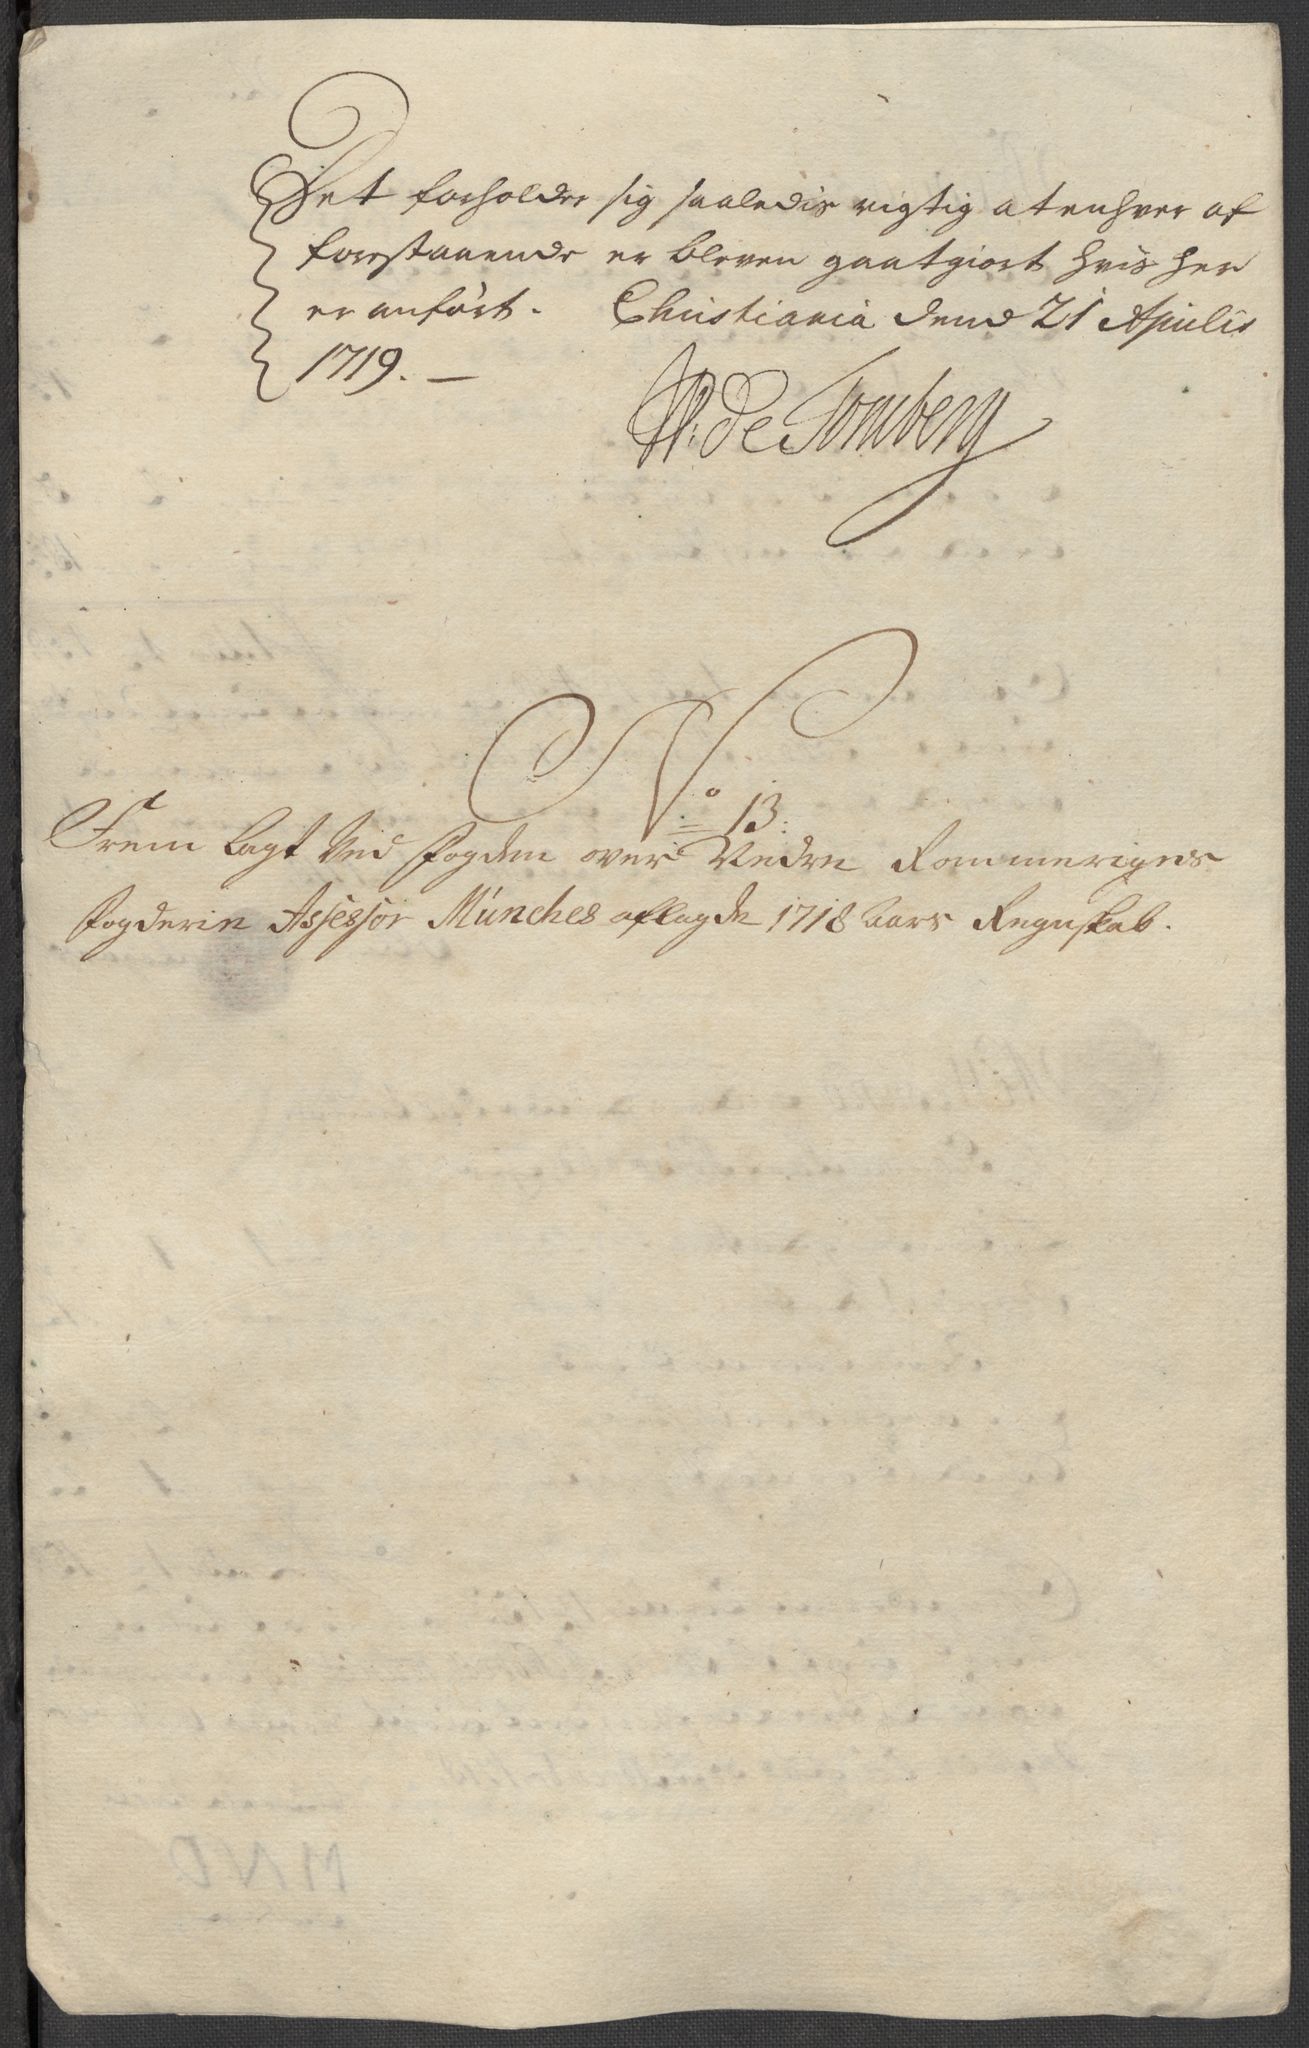 Det forholder sig saaledis rigtig at enhver af
forestaaende er bleven gaatgiort hvis her
er anført. Christiania dend 21 Aprilis
1719. —
W: de Tomberg
No 13:
Frem lagt Ved fogden over Nedre Rommeriges
fogderie Assessor Münches aflagde 1718 aars Regnskab.